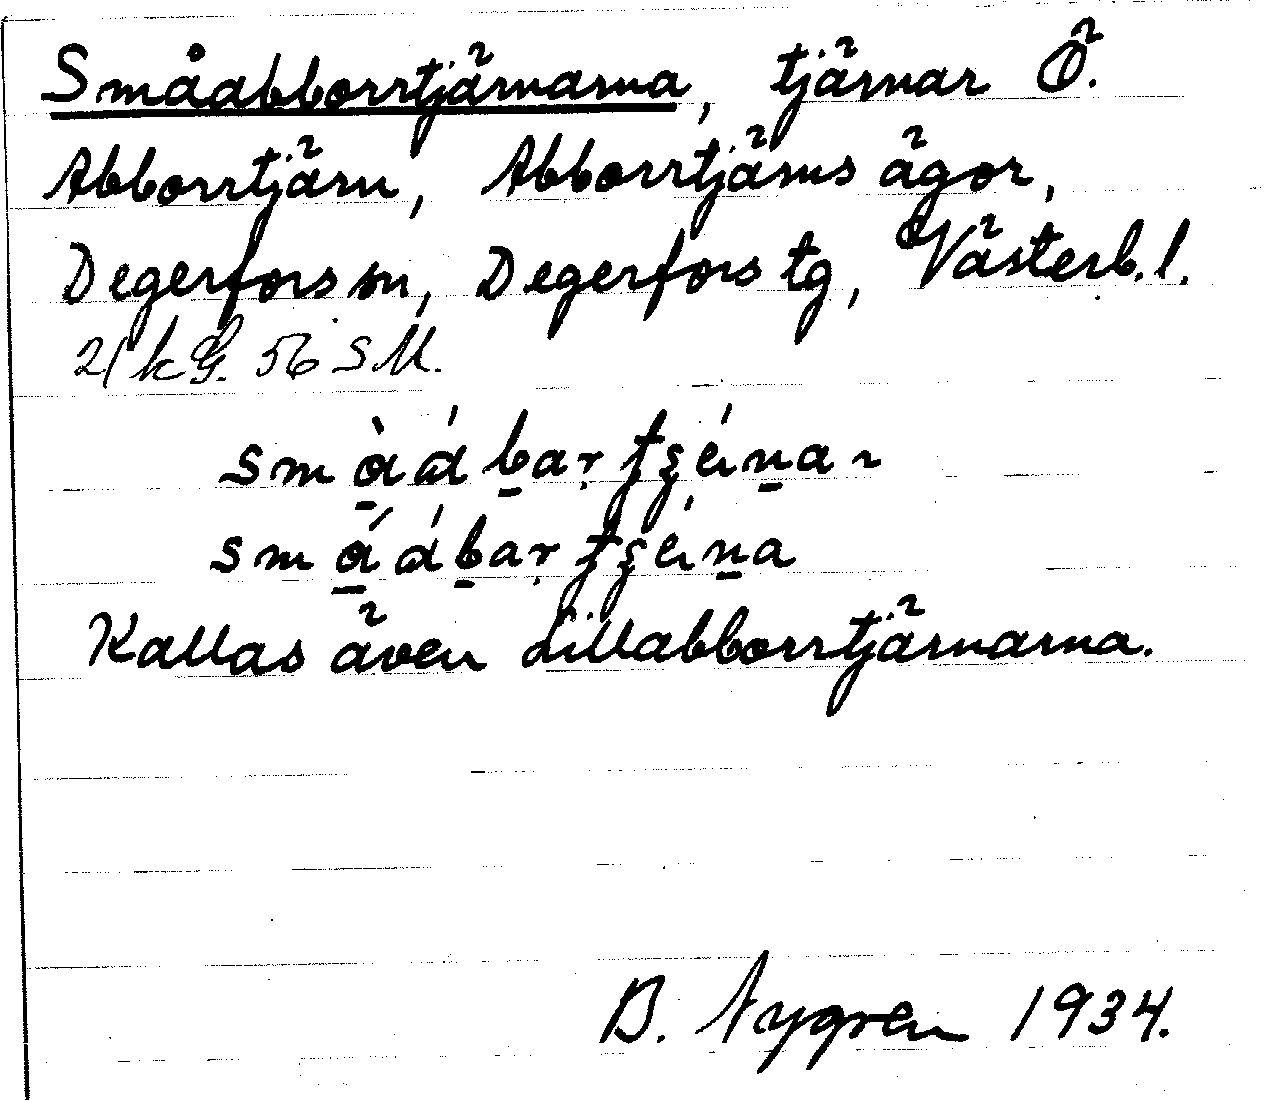 Småabborrtjärnarna, tjärnar Ö.
Abborrtjärn, Abborrtjärns ägor,
Degerfors sn, Degerfors tg, Västerb. l.
21 k G. 56 S M.
Kallas även Lillabborrtjärnarna.
B. Nygren 1934.